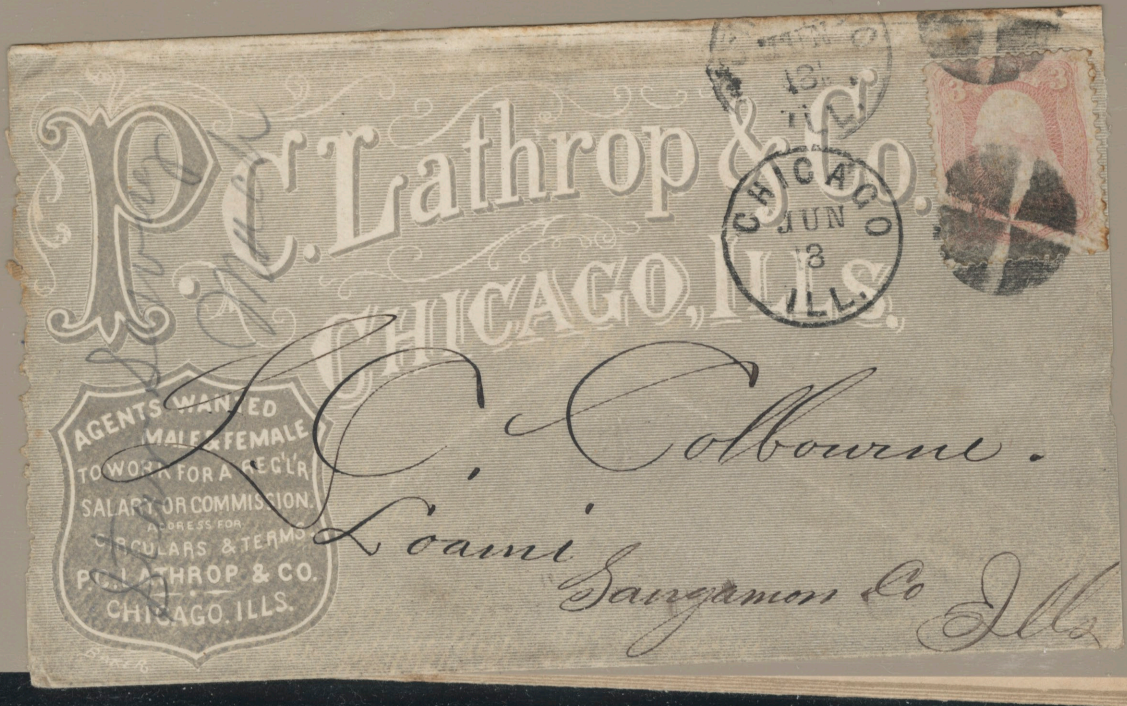 P.C. Lathrop & Co.
CHICAGO, ILLS.
JUN
13
ILL.
CHICAGO
JUN
13
ILL.
3 3
AGENTS WANTED
MALE & FEMALE
TO WORK FOR A REG'L'R
SALARY OR COMMISSION.
ADDRESS FOR
CIRCULARS & TERMS.
P.C. LATHROP & CO.
CHICAGO, ILLS.
BAKER
L C. Colbourne.
Loami
Sangamon Co
Ills